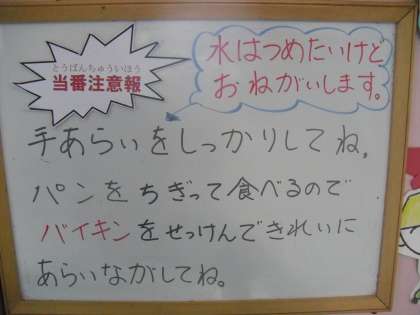 とうばんちゅういほう
当番注意報
水はつめたいけど
おねがいします。
手あらいをしっかりしてね。
パンをちぎって食べるので
バイキンをせっけんできれいに
あらいながしてね。